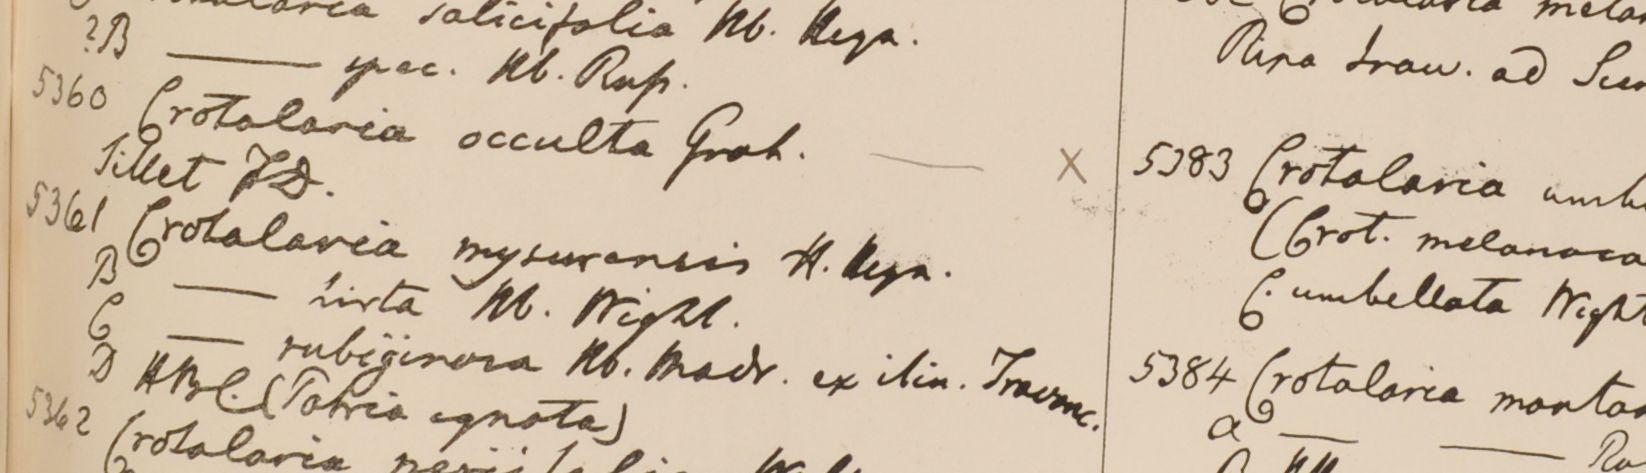 salicifolia Hb. Heyn.
?B — spec. Hb. Rufs.
5360 Crotalaria occulta Grah. — X
Sillet FD.
5361 Crotalaria mysurensis H. Heyn.
B — hirta Hb. Wight.
C — rubiginosa Hb. Madr. ex itin. Travanc.
D HBC. (Patria ignota)
5362 Crotalaria
Ripa Iraw. ad
5383 Crotalaria umb
(Crot. melanoca
C. umbellata Wight
5384 Crotalaria montan
a — —